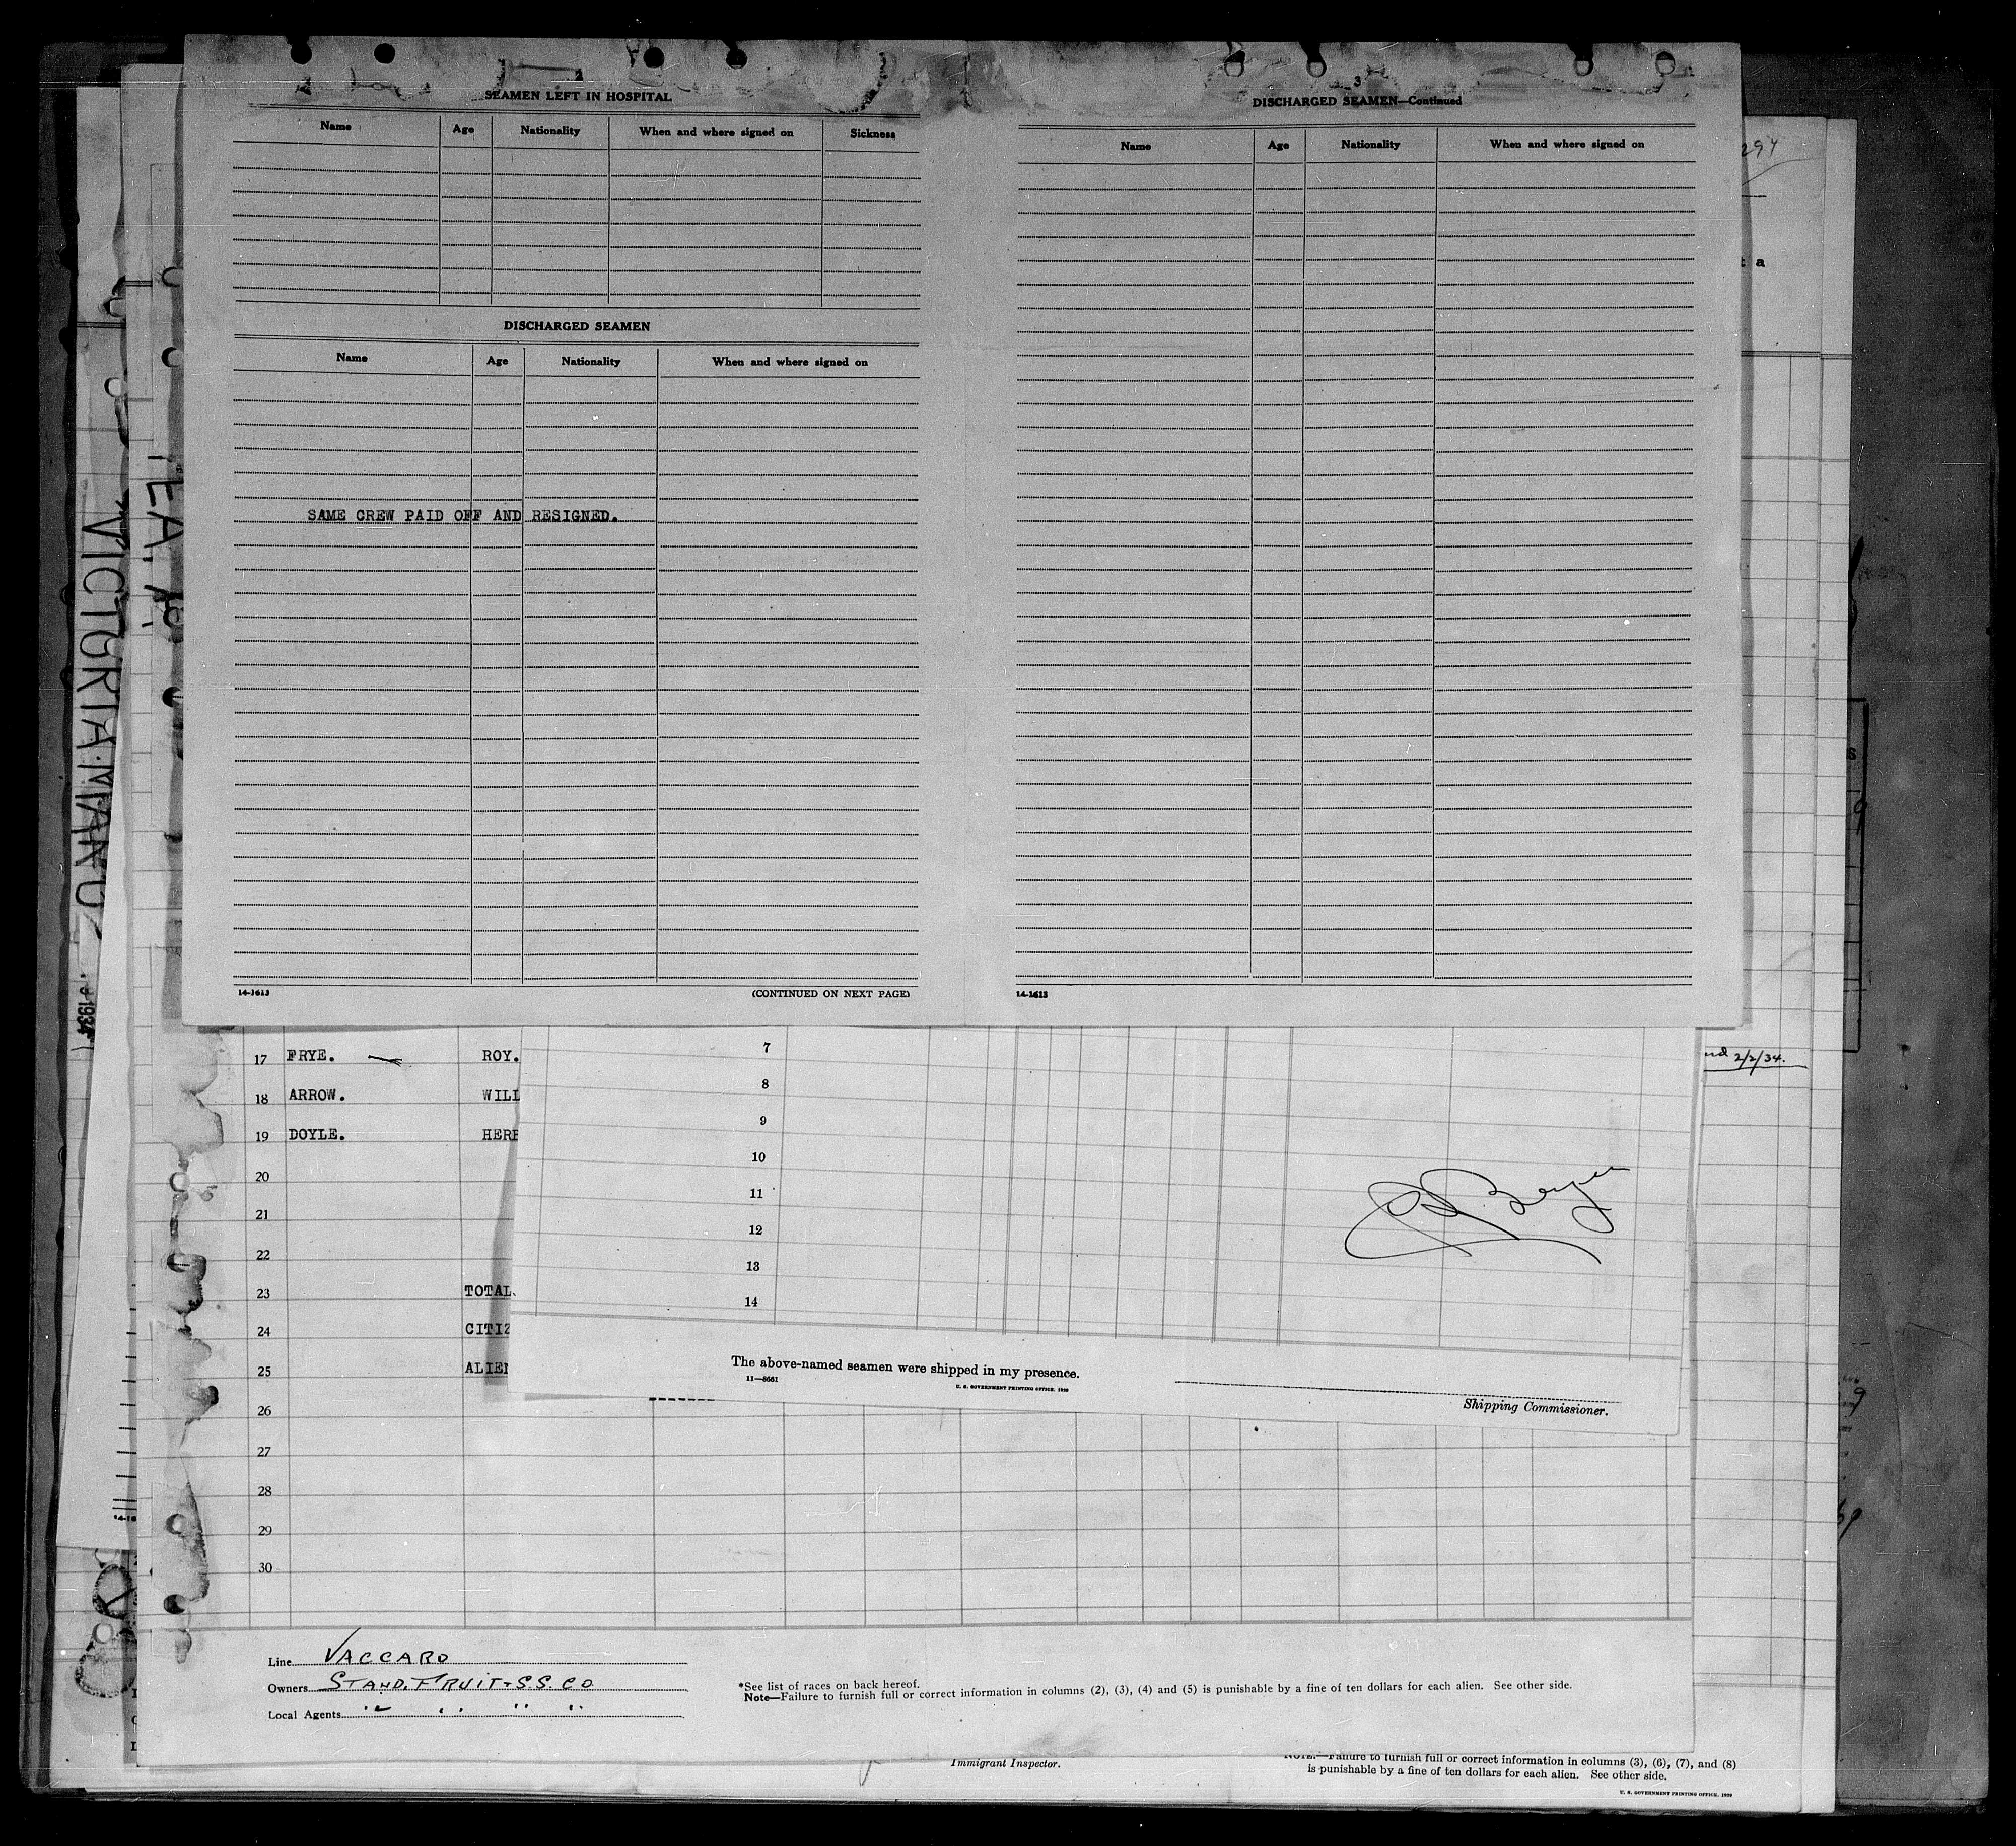 2
SEAMEN LEFT IN HOSPITAL
Name Age Nationality When and where signed on Sickness
DISCHARGED SEAMEN
Name Age Nationality When and where signed on
SAME CREW PAID OFF AND RESIGNED.
14-1613 (CONTINUED ON NEXT PAGE)
3
DISCHARGED SEAMEN—Continued
Name Age Nationality When and where signed on
14-1613
294
t a
VICTORIA MARU
1934
2/2/34.
17 FRYE. ROY.
18 ARROW. WILL
19 DOYLE. HERB
20
21
22
23 TOTAL
24 CITIZ
25 ALIEN
26
27
28
29
30
7
8
9
10
11
12
13
14
The above-named seamen were shipped in my presence.
11—8661 U. S. GOVERNMENT PRINTING OFFICE. 1929
Shipping Commissioner.
Line VACCARO
Owners STAND. FRUIT & S.S. CO
Local Agents " " " "
*See list of races on back hereof.
Note—Failure to furnish full or correct information in columns (2), (3), (4) and (5) is punishable by a fine of ten dollars for each alien. See other side.
Immigrant Inspector.
NOTE.—Failure to furnish full or correct information in columns (3), (6), (7), and (8)
is punishable by a fine of ten dollars for each alien. See other side.